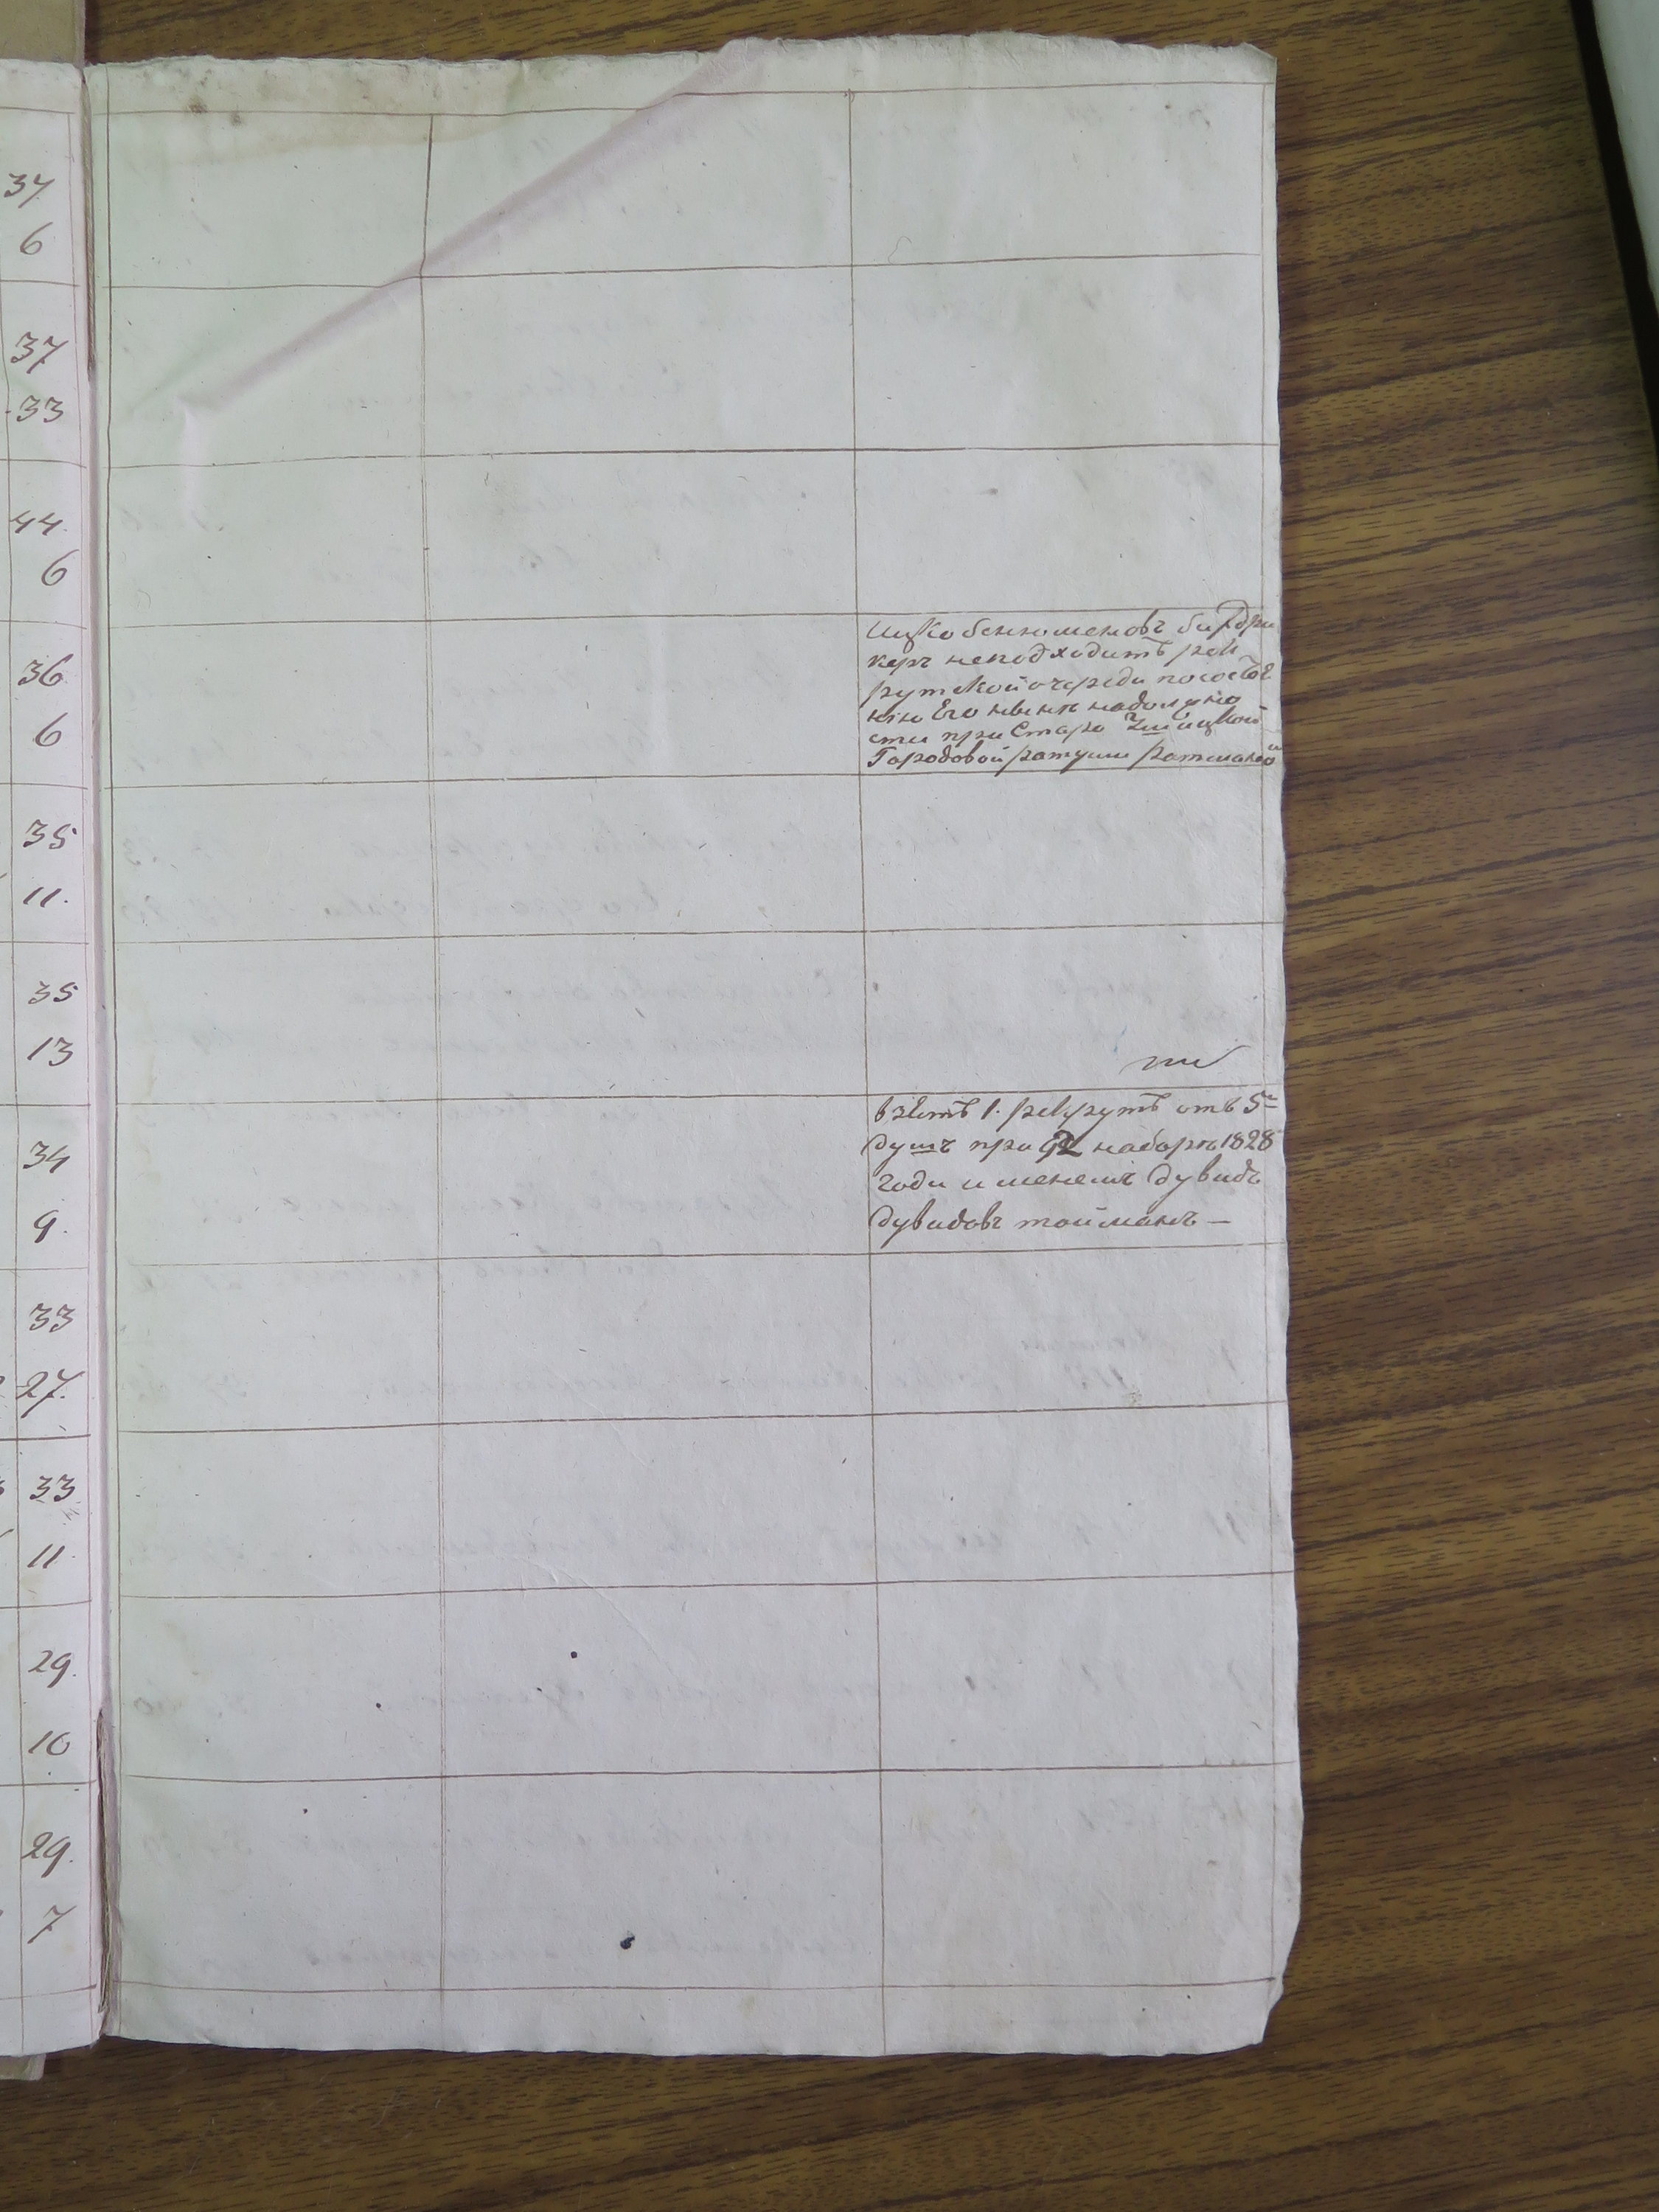 37
6
37
33
44.
6
36
6
35
11.
35
13
34
9.
33
27.
33
11
29.
10
29.
7
Ицко бенюменовъ
керъ неподходитъ рек
рутской очереди по
нію Его нынѣ надолжно
сти при Старо
Городовой ратуши ратмано
взятъ 1. рекрутъ отъ 5и
душъ при 92 наборѣ 1828
годи именемъ Дувидъ
Дувидовъ тойманъ —